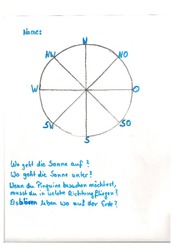 Name:
N
NW NO
W O
SW SO
S
Wo geht die Sonne auf?
Wo geht die Sonne unter?
Wenn du Pinguine besuchen möchtest,
musst du in welche Richtung fliegen?
Eisbären leben wo auf der Erde?